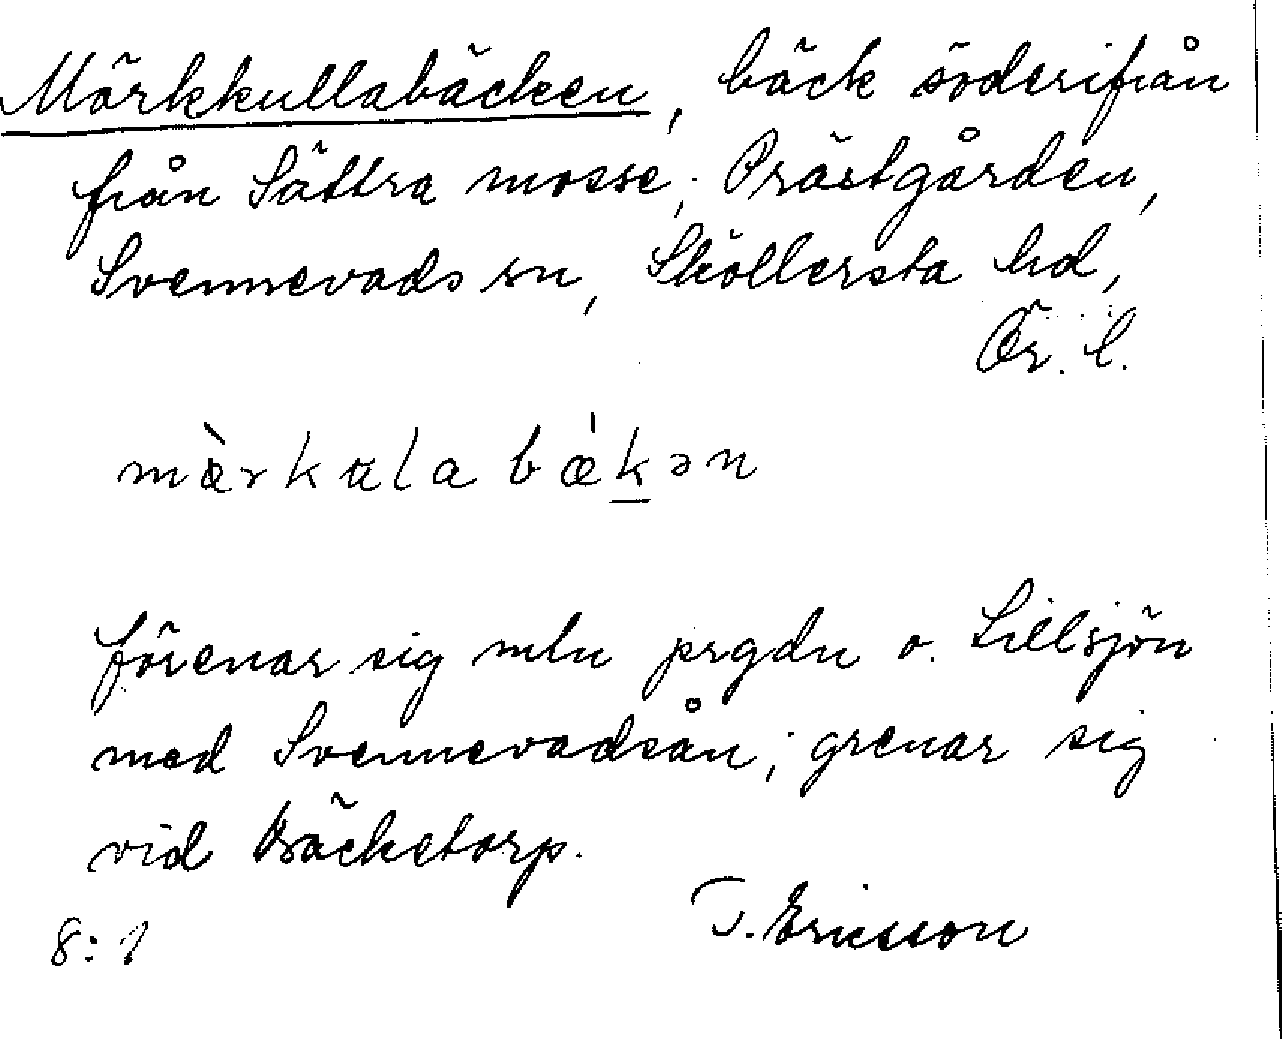 Mörkkullabäcken, bäck söderifrån
från Sättra mosse, Prästgården,
Svennevads sn, Sköllersta hd,
Ör. l.
mæ̀rkala bǽk̲ən
förenar sig mln prgdn o. Lillsjön
med Svennevadsån; grenar sig
vid Bäcketorp.
8:1 T. Ericsson